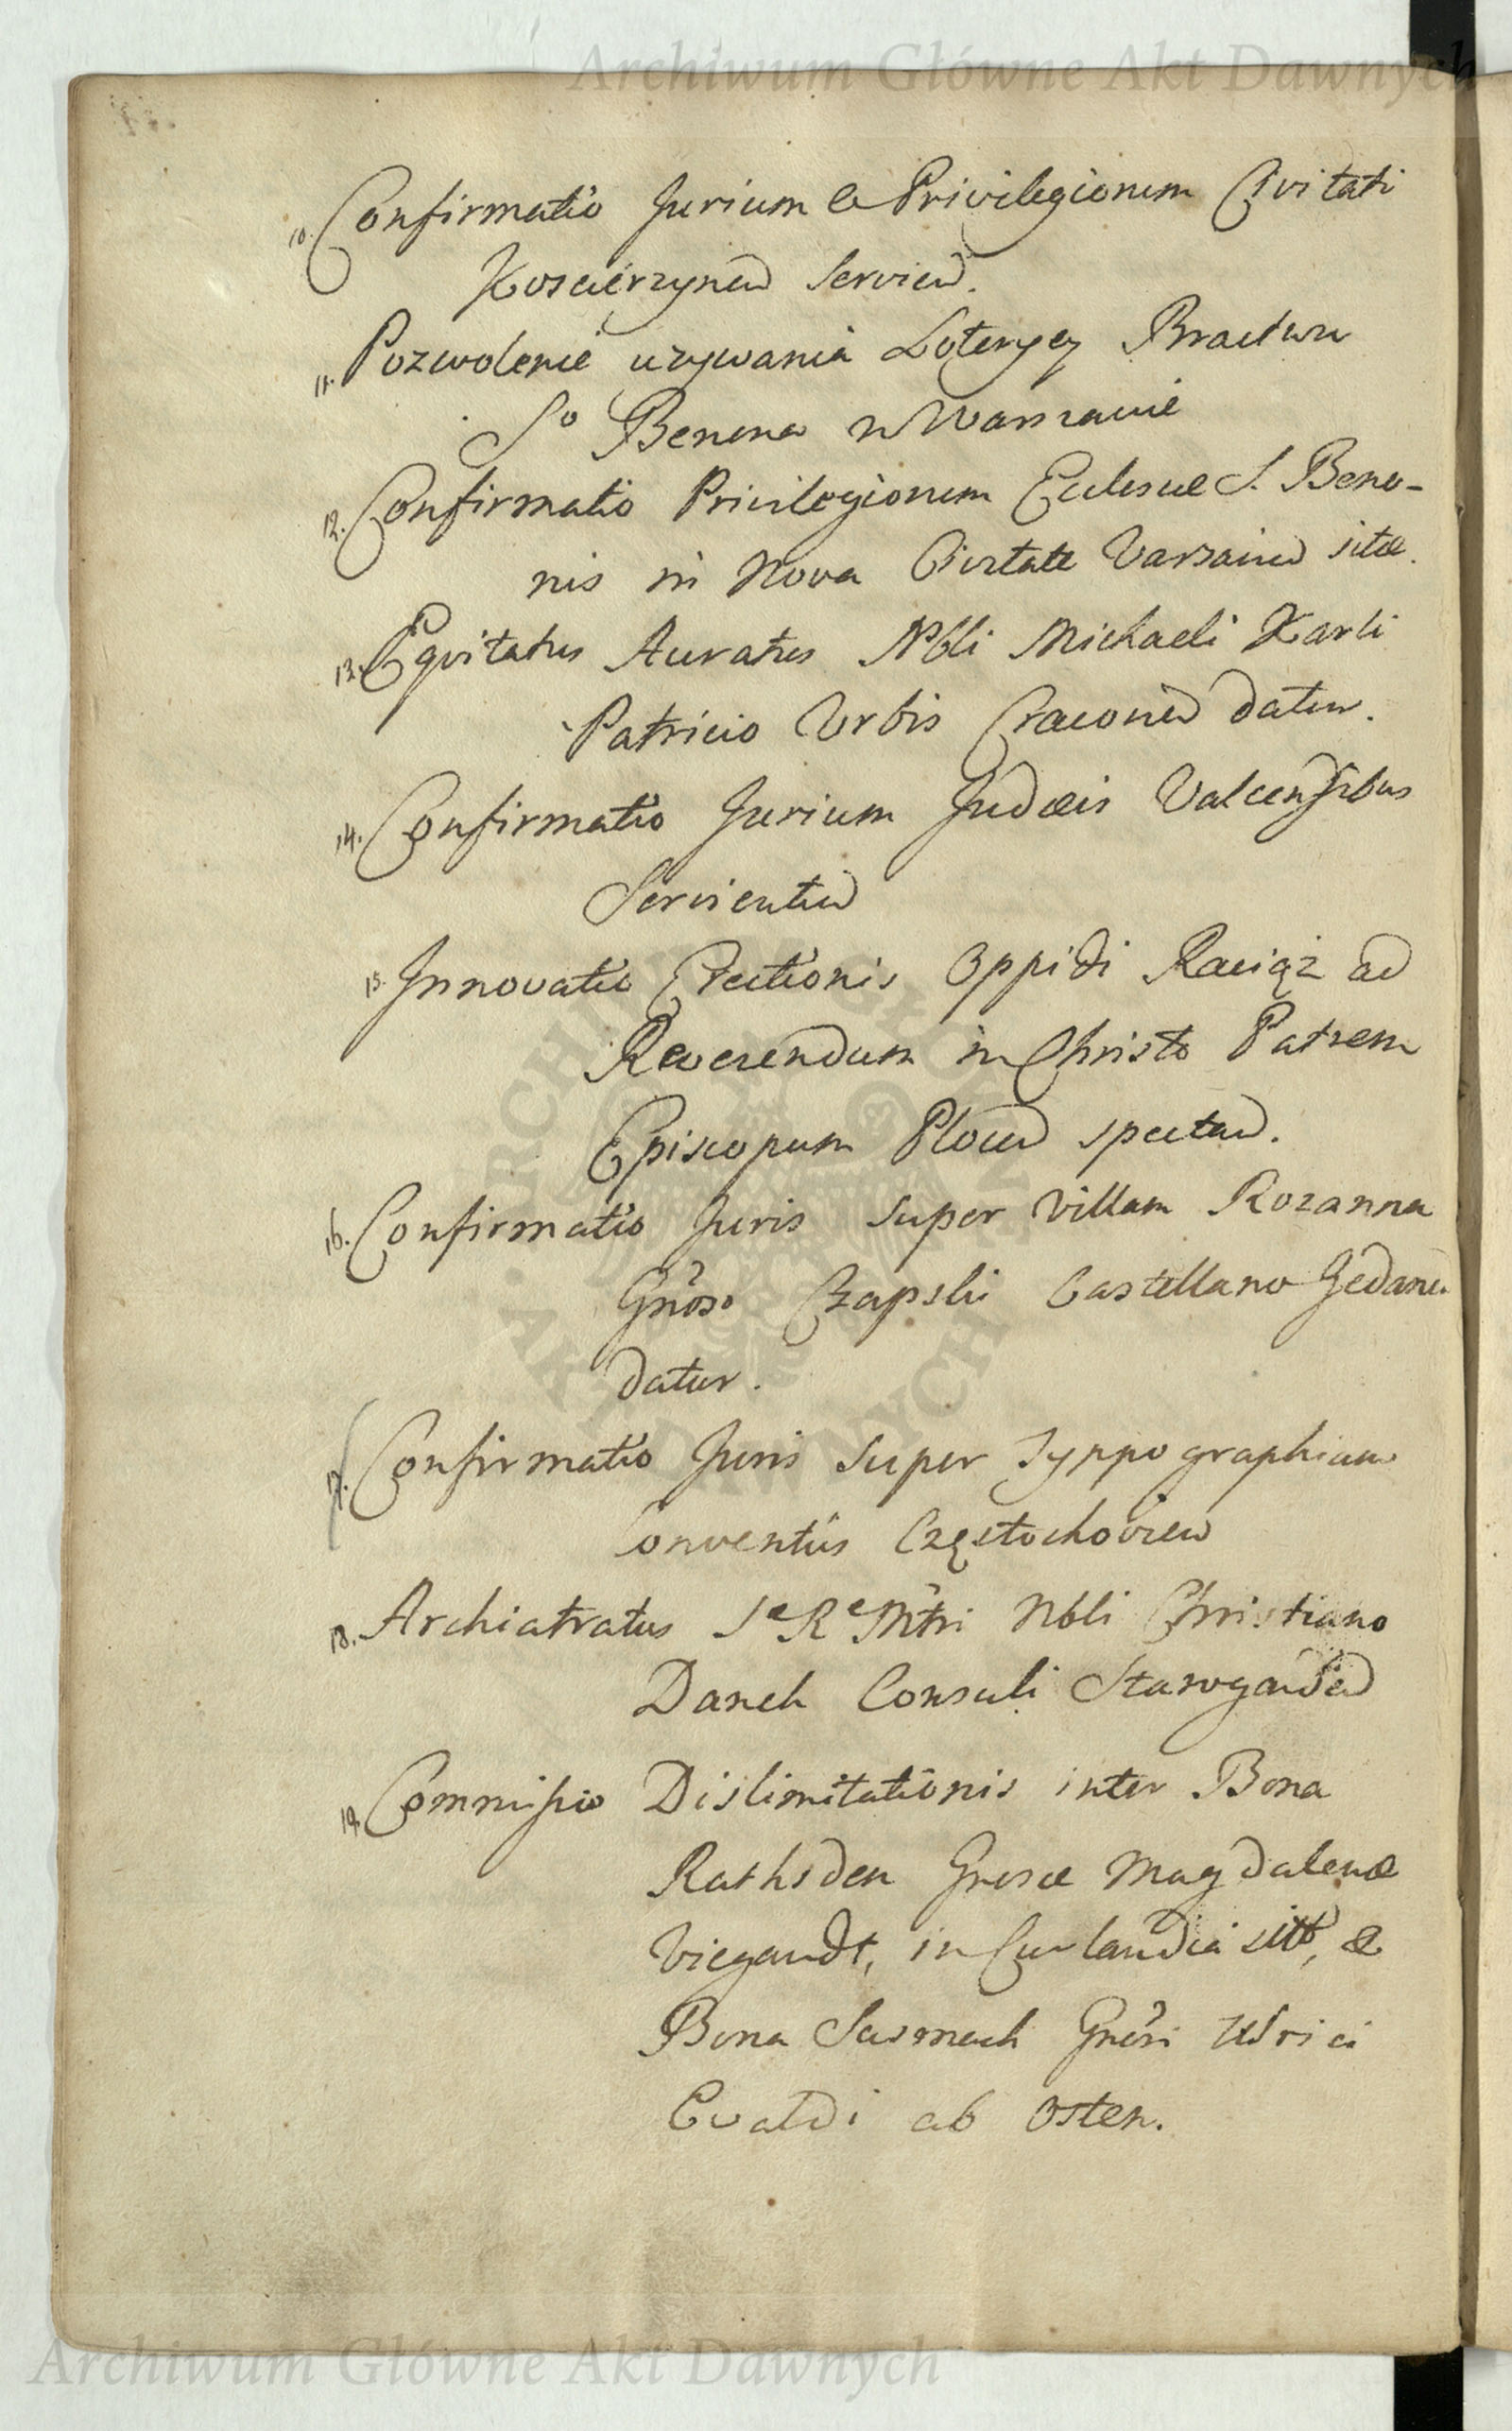 Archiwum Główne Akt Dawnych
10. Confirmatio Jurium & Privilegionum Civitati
Koscierzynen servien.
11. Pozwolenie uzywania Loteryey Bractwu
So Benona w Warszawie
12. Confirmatio Privilegionum Ecclesiae S. Beno-
nis in Nova Civitate Varsavien sitæ.
13. Eqvitatus Auratus Nbli Michaeli Karli
Patricio Urbis Cracovien datur.
14. Confirmatio Jurium Judæis Valcensibus
Servientiu
15. Innovatio Erectionis Oppidi Raciąż ad
Reverendum in Christo Patrem
Episcopum Plocen spectan.
16. Confirmatio Juris super villam Rozanna
Gnoso Czapski Castellano Gedanen.
datur.
17. Confirmatio Juris super Typpographiam
Conventûs Częstochovien
18. Archiatratus Se Re Mtri Nbli Christiano
Daneh Consuli Starogardien
19. Commissio Dislimitationis inter Bona
Rathsden Gnosæ Magdalenæ
Viegandt, in Curlandia sitt, &
Bona Sasmach Gnosi Ulrici
Evaldi ab Osten.
ARCHIWUM GŁÓWNE
AKT DAWNYCH
Archiwum Główne Akt Dawnych